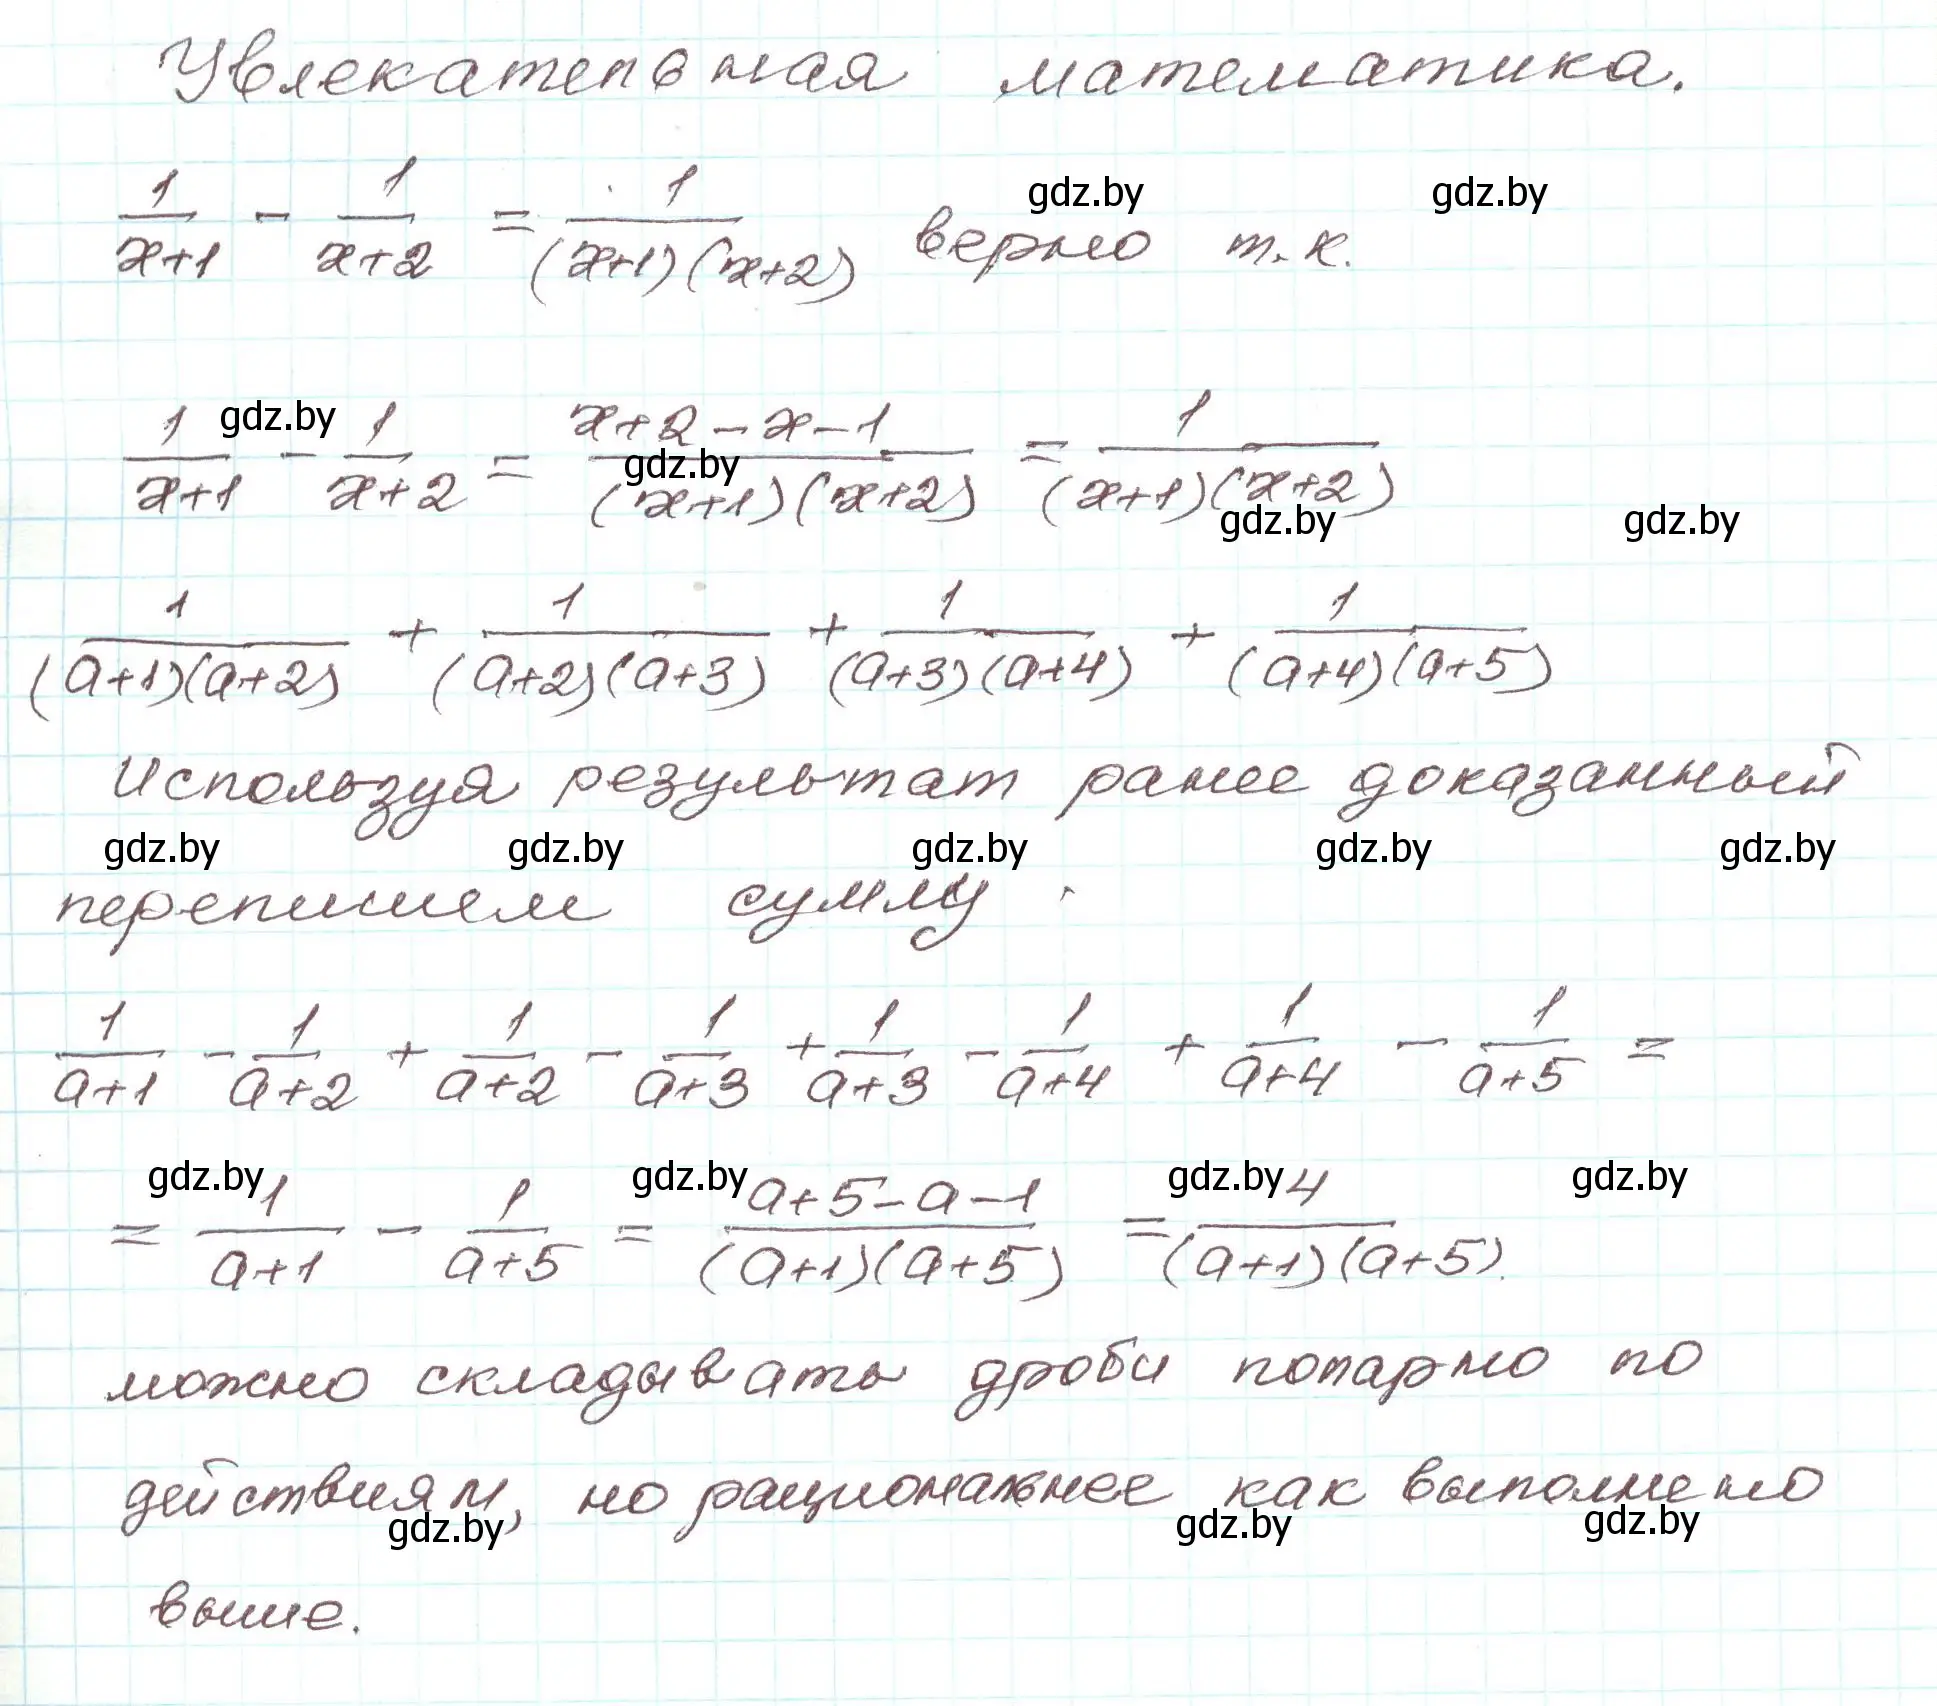 Увлекательная математика.
1/(x+1) - 1/(x+2) = 1/((x+1)(x+2)) верно т.к.
1/(x+1) - 1/(x+2) = (x+2-x-1)/((x+1)(x+2)) = 1/((x+1)(x+2))
1/((a+1)(a+2)) + 1/((a+2)(a+3)) + 1/((a+3)(a+4)) + 1/((a+4)(a+5))
Используя результат ранее доказанный
перепишем сумму
1/(a+1) - 1/(a+2) + 1/(a+2) - 1/(a+3) + 1/(a+3) - 1/(a+4) + 1/(a+4) - 1/(a+5) =
= 1/(a+1) - 1/(a+5) = (a+5-a-1)/((a+1)(a+5)) = 4/((a+1)(a+5)).
можно складывать дроби попарно по
действиям, но рациональнее как выполнено
выше.
gdz.by gdz.by
gdz.by
gdz.by
gdz.by gdz.by
gdz.by gdz.by gdz.by gdz.by gdz.by
gdz.by gdz.by gdz.by gdz.by
gdz.by gdz.by gdz.by